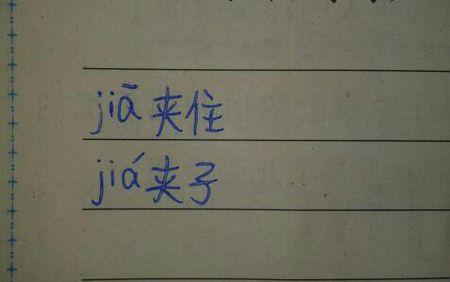 jiā夹住
jiá夹子